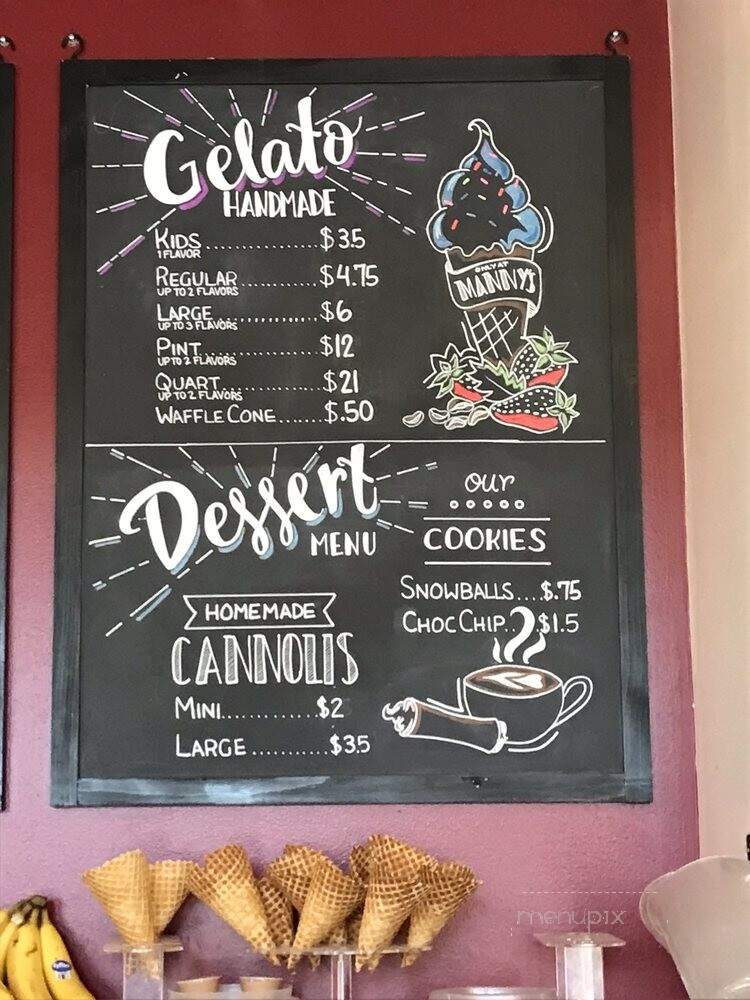 Gelato
HANDMADE
KIDS..................$3.5
1 FLAVOR
REGULAR............$4.75
UP TO 2 FLAVORS
LARGE.................$6
UP TO 3 FLAVORS
PINT....................$12
UP TO 2 FLAVORS
QUART.................$21
UP TO 2 FLAVORS
WAFFLE CONE.......$.50
ONLY AT
MANNY'S
Dessert
MENU
HOMEMADE
CANNOLIS
MINI...............$2
LARGE...........$3.5
our
COOKIES
SNOWBALLS....$.75
CHOC CHIP...$1.5
menupix